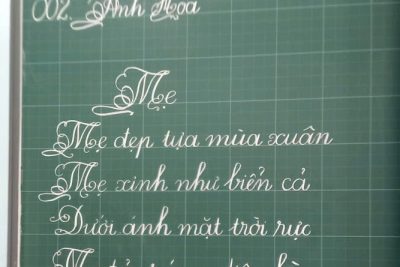 002. Ánh Họa
Mẹ
Mẹ đẹp tựa mùa xuân
Mẹ xinh như biển cả
Dưới ánh mặt trời rực
Mẹ